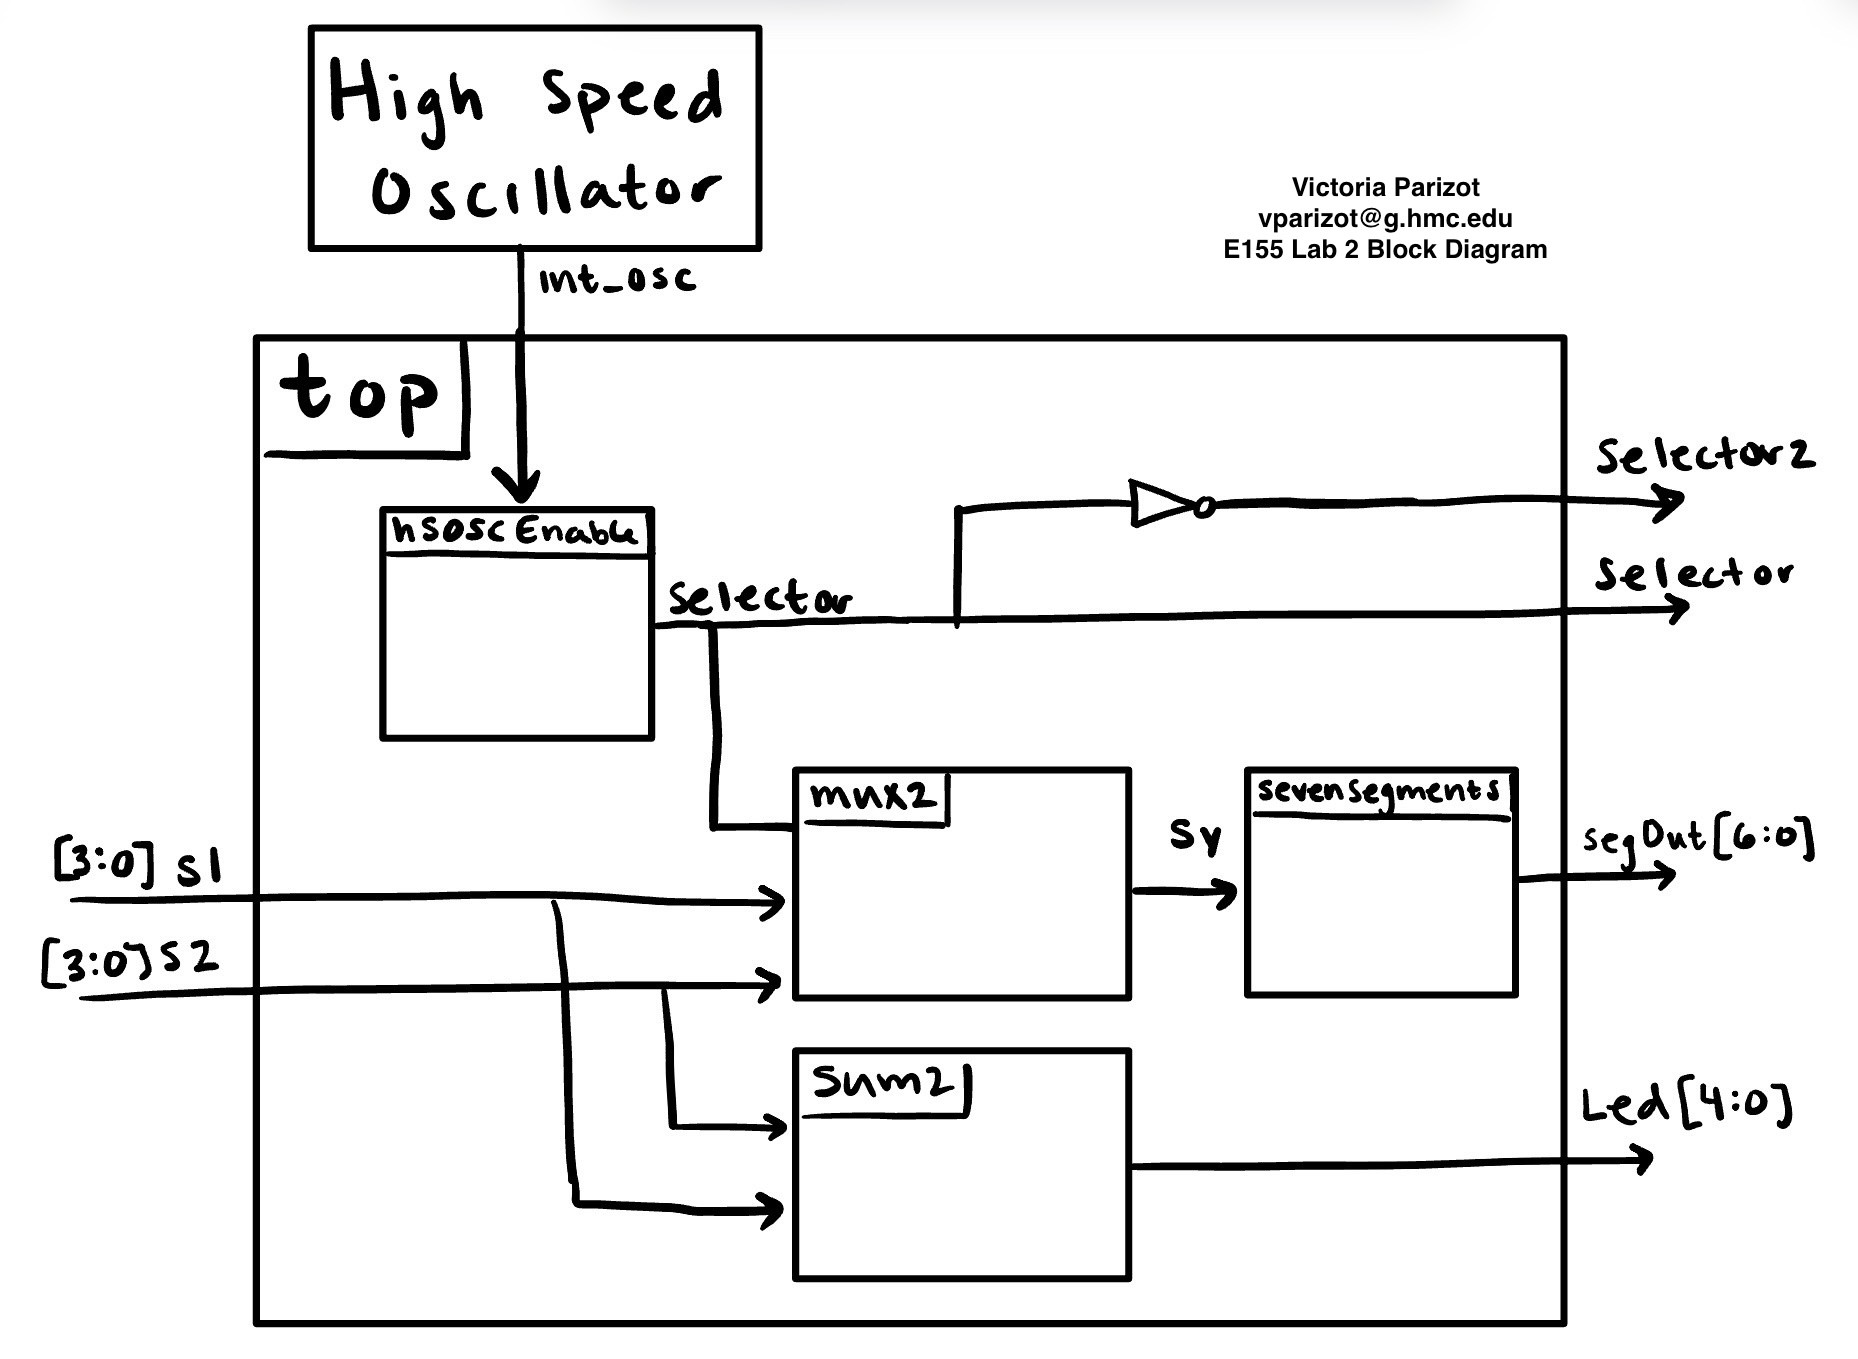 High Speed
Oscillator
Victoria Parizot
vparizot@g.hmc.edu
E155 Lab 2 Block Diagram
int_osc
top
Selector2
hsoscEnable
Selector
Selector
mux2
sevenSegments
Sy
segOut[6:0]
[3:0] S1
[3:0] S2
Sum2
Led[4:0]